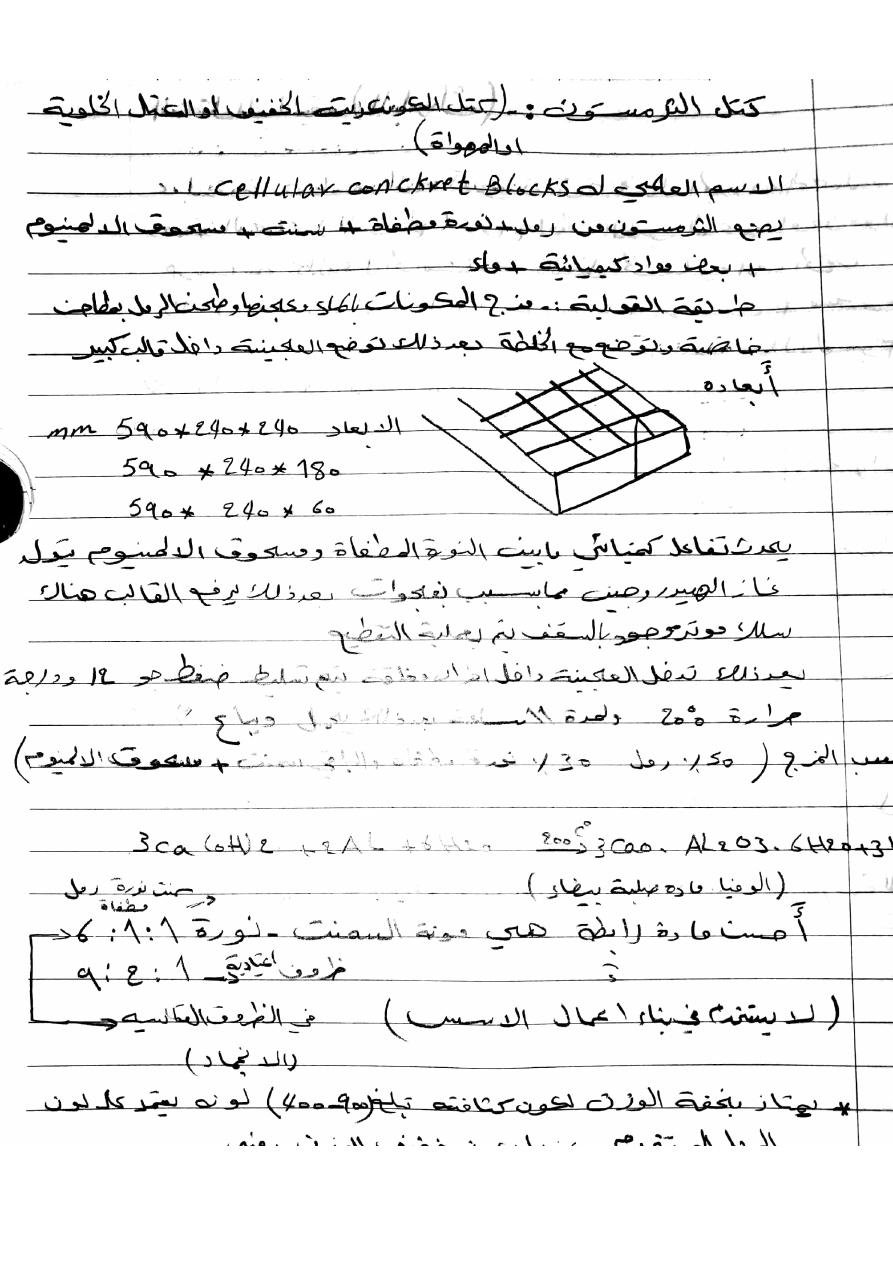 كتل الثرمستون :- (كتل الكونكريت الخفيف او الكتل الخلوية
او المهواة)
الاسم العلمي له Cellular conckret Blocks
يصنع الثرمستون من رمل + نورة مطفاة + سمنت + مسحوق الالمنيوم
+ بعض مواد كيميائية + ماء
طريقة القولبة :- مزج المكونات بالماء وعجنها وطحن الرمل بمطاحن
خاصة وتوضع مع الخلطة بعد ذلك توضع العجينة داخل قالب كبير
أبعاده
الابعاد 240*240*590 mm
590 * 240 * 180
590 * 240 * 60
يحدث تفاعل كيميائي مابين النورة المطفاة ومسحوق الالمنيوم يتولد
غاز الهيدروجين مما يسبب بفجوات بعد ذلك يرفع القالب هناك
سلك موتر موجود بالسقف يتم بعملية التقطيع
بعد ذلك تدخل العجينة داخل يتم تسليط ضغط هو 12 ودرجة
حرارة 200 ولمدة ويباع
المزج ( 50٪ رمل 30٪ نورة مطفاة والباقي سمنت + مسحوق الالمنيوم)
3Ca(OH)2 + 2AL + 6H2O 200C° 3CaO. AL2O3. 6H2O + 3
(مادة صلبة بيضاء)
سمنت نورة رمل
مطفاة
أحسن مادة رابطة هي مونة السمنت - نورة 1:1:6
ظروف اعتيادية 1 : 2 : 9
(لا يستخدم في بناء اعمال الاسس) في الظروف القاسية
(الانجماد)
* يمتاز بخفة الوزن لكون كثافته تبلغ (400-900) لونه يعتمد على لون